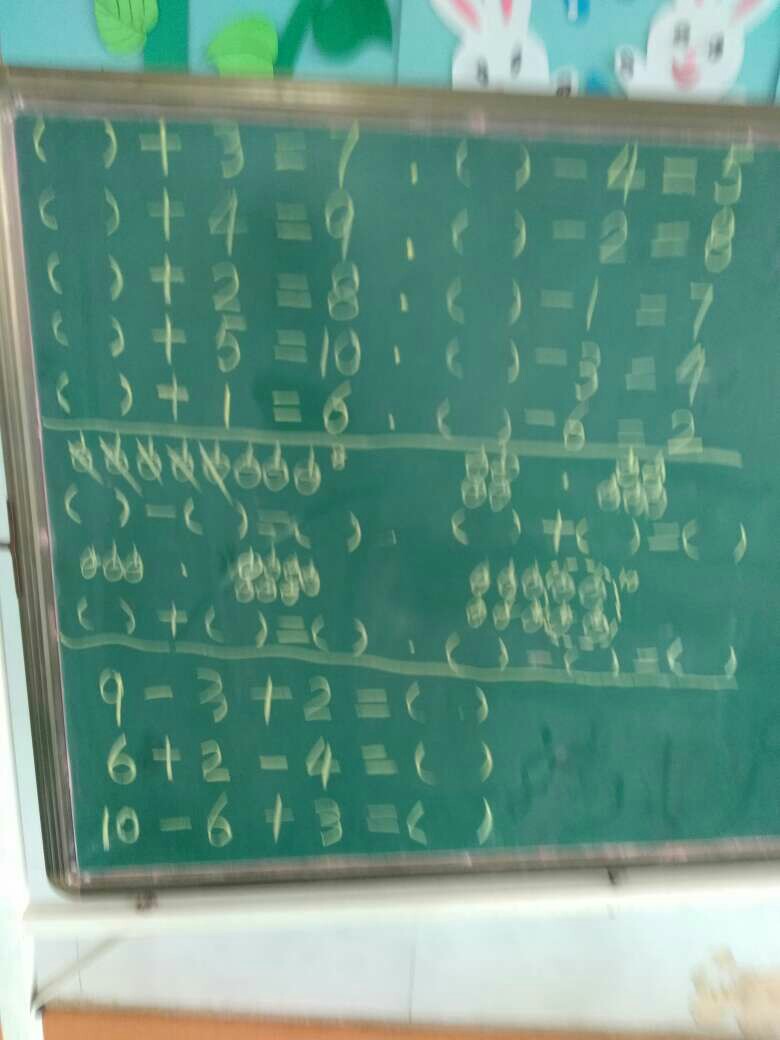 ( ) + 3 = 7 . ( ) - 4 = 5
( ) + 4 = 9 . ( ) - 2 = 8
( ) + 2 = 8 . ( ) - 1 = 7
( ) + 5 = 10 . ( ) - 3 = 4
( ) + 1 = 6 . ( ) - 6 = 2
( ) - ( ) = ( ) . ( ) + ( ) = ( )
( ) + ( ) = ( ) . ( ) - ( ) = ( )
9 - 3 + 2 = ( )
6 + 2 - 4 = ( )
10 - 6 + 3 = ( )